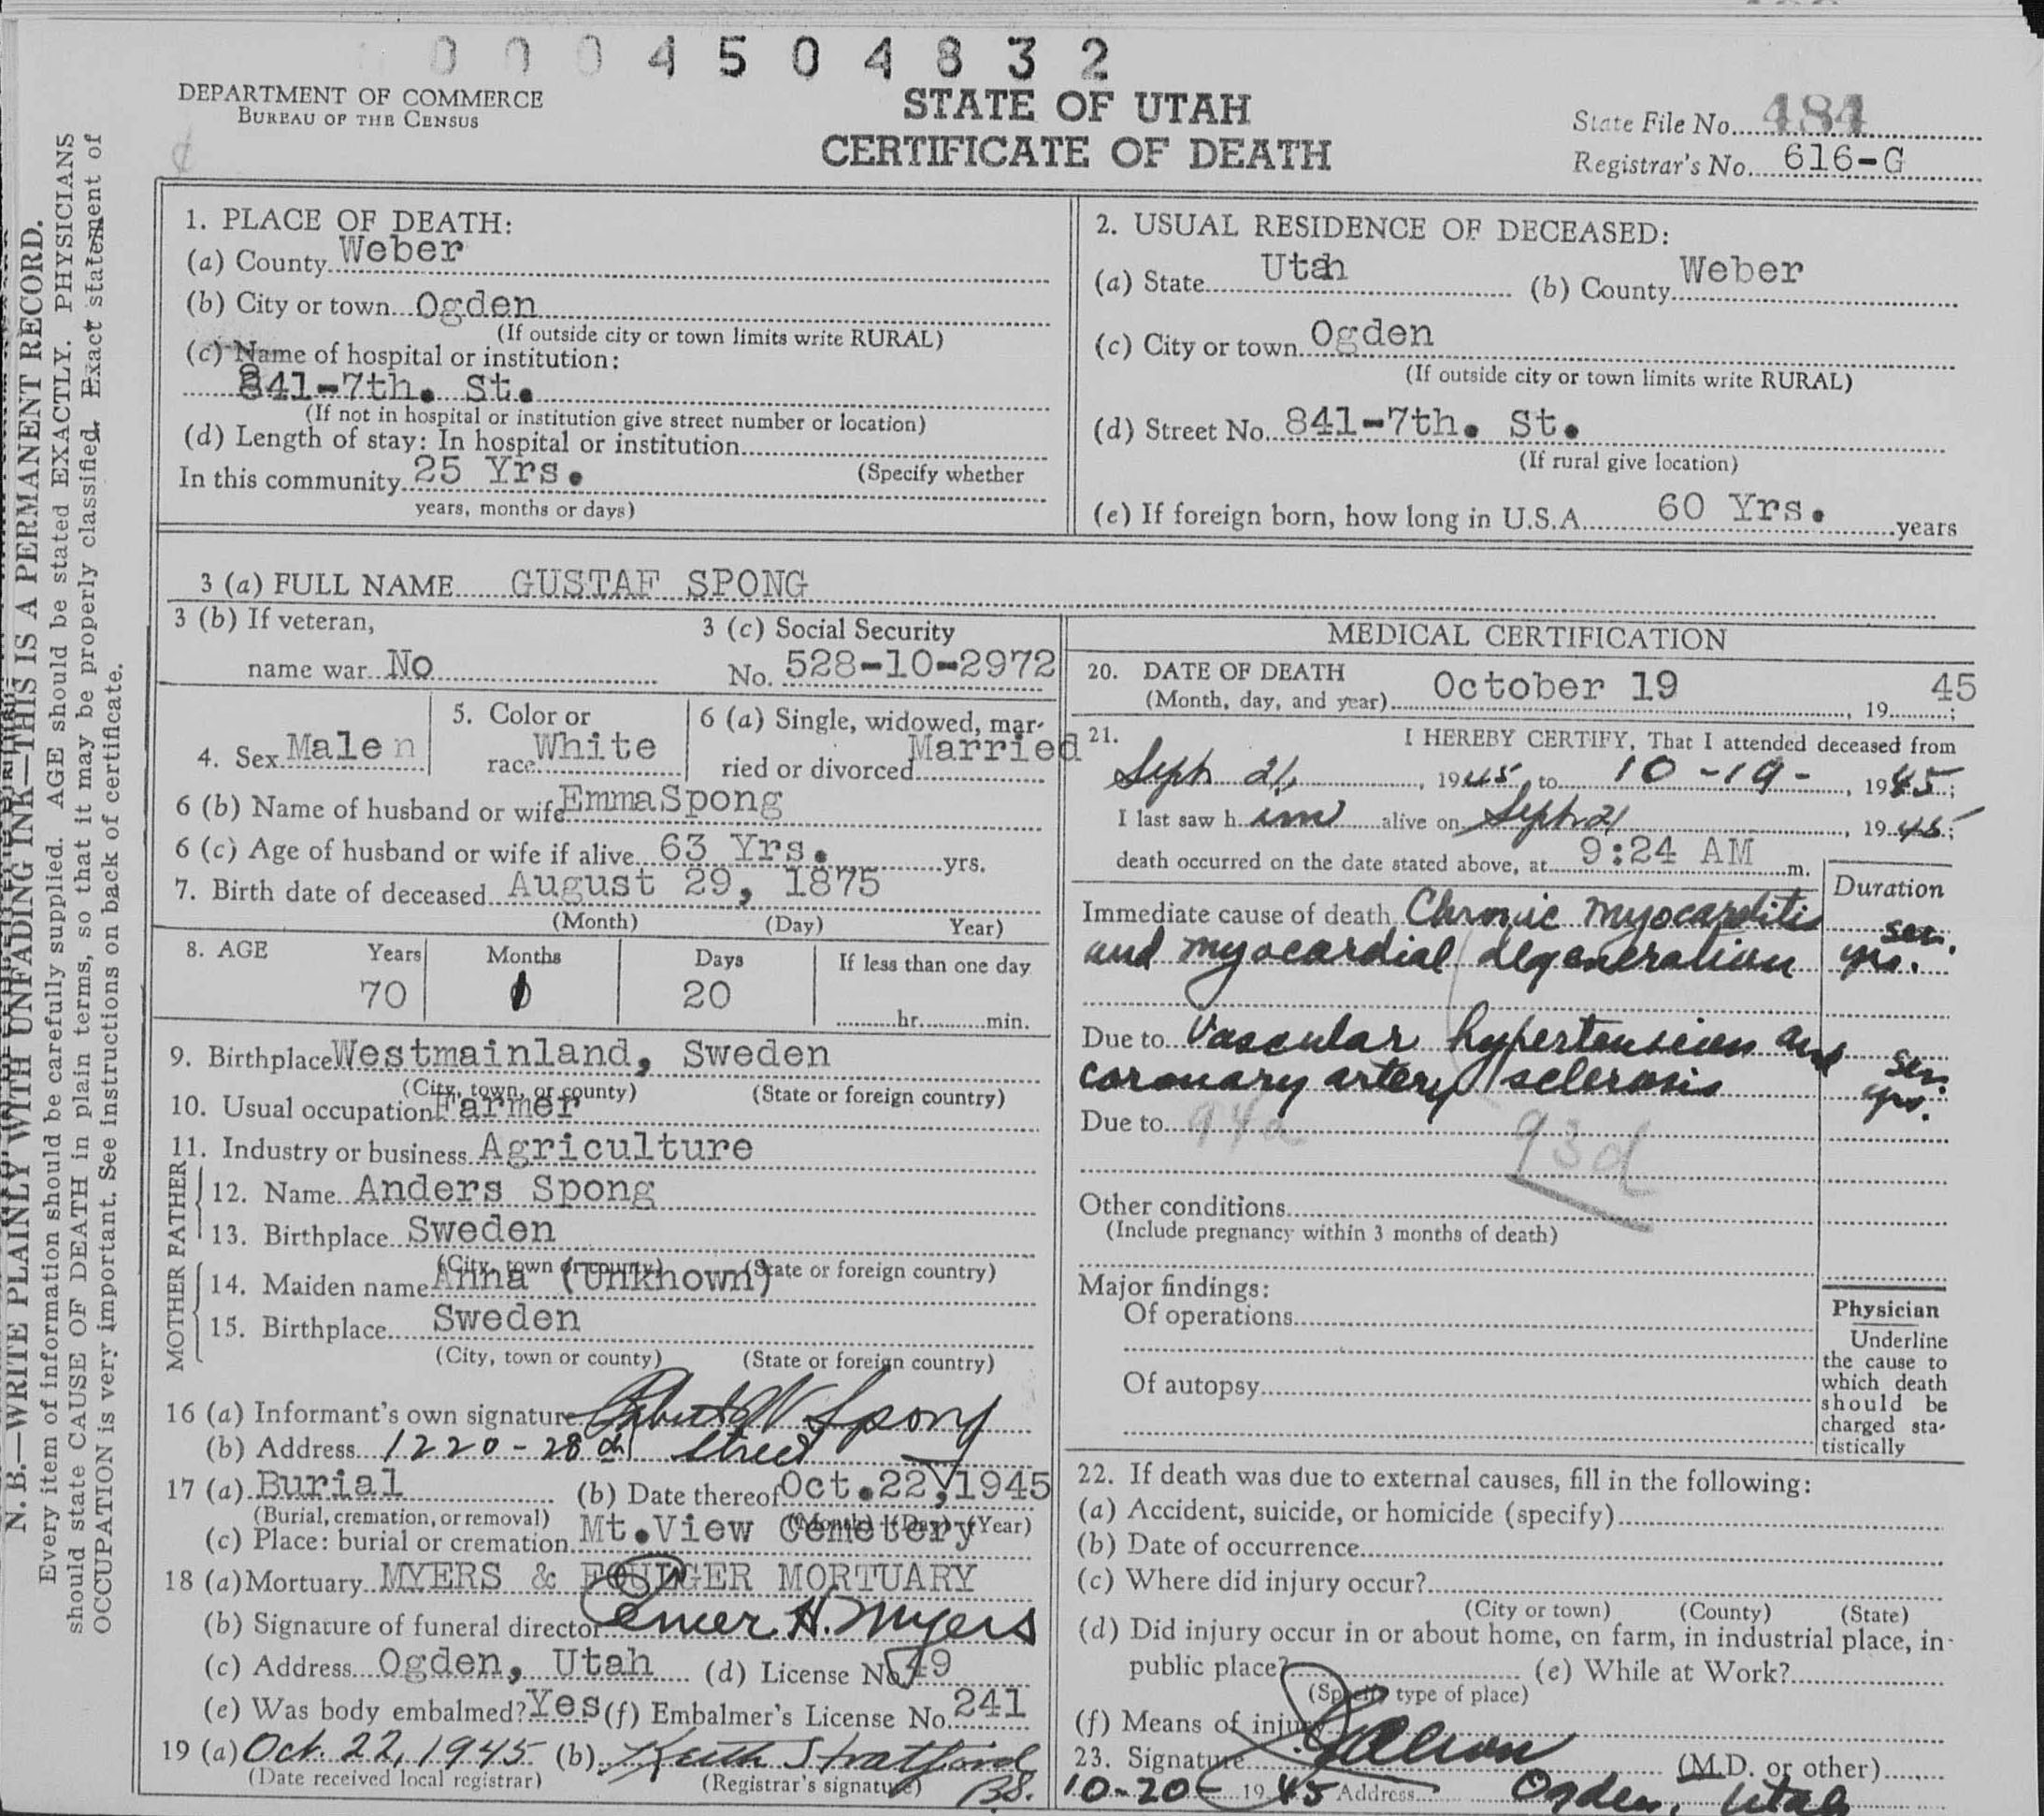 0 0 0 4 5 0 4 8 3 2
DEPARTMENT OF COMMERCE
BUREAU OF THE CENSUS
STATE OF UTAH
CERTIFICATE OF DEATH
State File No. 484
Registrar's No. 616-G
N. B.—WRITE PLAINLY WITH UNFADING INK—THIS IS A PERMANENT RECORD.
Every item of information should be carefully supplied. AGE should be stated EXACTLY. PHYSICIANS
should state CAUSE OF DEATH in plain terms, so that it may be properly classified. Exact statement of
OCCUPATION is very important. See instructions on back of certificate.
1. PLACE OF DEATH:
(a) County Weber
(b) City or town Ogden
(If outside city or town limits write RURAL)
(c) Name of hospital or institution:
841-7th. St.
(If not in hospital or institution give street number or location)
(d) Length of stay: In hospital or institution
In this community 25 Yrs. (Specify whether
years, months or days)
2. USUAL RESIDENCE OF DECEASED:
(a) State Utah (b) County Weber
(c) City or town Ogden
(If outside city or town limits write RURAL)
(d) Street No. 841-7th. St.
(If rural give location)
(e) If foreign born, how long in U.S.A. 60 Yrs. years
3 (a) FULL NAME GUSTAF SPONG
3 (b) If veteran,
name war No
3 (c) Social Security
No. 528-10-2972
4. Sex Male n
5. Color or
race White
6 (a) Single, widowed, mar-
ried or divorced Married
6 (b) Name of husband or wife EmmaSpong
6 (c) Age of husband or wife if alive 63 Yrs. yrs.
7. Birth date of deceased August 29, 1875
(Month) (Day) Year)
8. AGE Years Months Days If less than one day
70 1 20 hr. min.
9. Birthplace Westmainland, Sweden
(City, town, or county) (State or foreign country)
10. Usual occupation Farmer
11. Industry or business Agriculture
FATHER
12. Name Anders Spong
13. Birthplace Sweden
(City, town or county) (State or foreign country)
MOTHER
14. Maiden name Anna (Unkhown)
15. Birthplace Sweden
(City, town or county) (State or foreign country)
16 (a) Informant's own signature Spong
(b) Address 1220-28th street
17 (a) Burial (b) Date thereof Oct. 22, 1945
(Burial, cremation, or removal) (Month) (Day) (Year)
(c) Place: burial or cremation Mt. View Cemetery
18 (a) Mortuary MYERS & FOULGER MORTUARY
(b) Signature of funeral director Elmer H. Myers
(c) Address Ogden, Utah (d) License No. 49
(e) Was body embalmed? Yes (f) Embalmer's License No. 241
19 (a) Oct. 22, 1945 (b) Keith Stratford
(Date received local registrar) (Registrar's signature) BS.
MEDICAL CERTIFICATION
20. DATE OF DEATH
(Month, day, and year) October 19, 19 45;
21. I HEREBY CERTIFY, That I attended deceased from
Sept 21, 1945, to 10-19-, 1945;
I last saw h im alive on Sept 21, 1945;
death occurred on the date stated above, at 9:24 AM m.
Duration
Immediate cause of death Chronic myocarditis
and myocardial degeneration sev. yrs.
Due to Vascular hypertension and
coronary artery sclerosis sev. yrs.
Due to 94a 93d
Other conditions
(Include pregnancy within 3 months of death)
Major findings:
Of operations
Of autopsy
Physician
Underline
the cause to
which death
should be
charged sta-
tistically
22. If death was due to external causes, fill in the following:
(a) Accident, suicide, or homicide (specify)
(b) Date of occurrence
(c) Where did injury occur?
(City or town) (County) (State)
(d) Did injury occur in or about home, on farm, in industrial place, in
public place? (e) While at Work?
(Specify type of place)
(f) Means of injury
23. Signature (M.D. or other)
10-20- 1945 Address Ogden, Utah